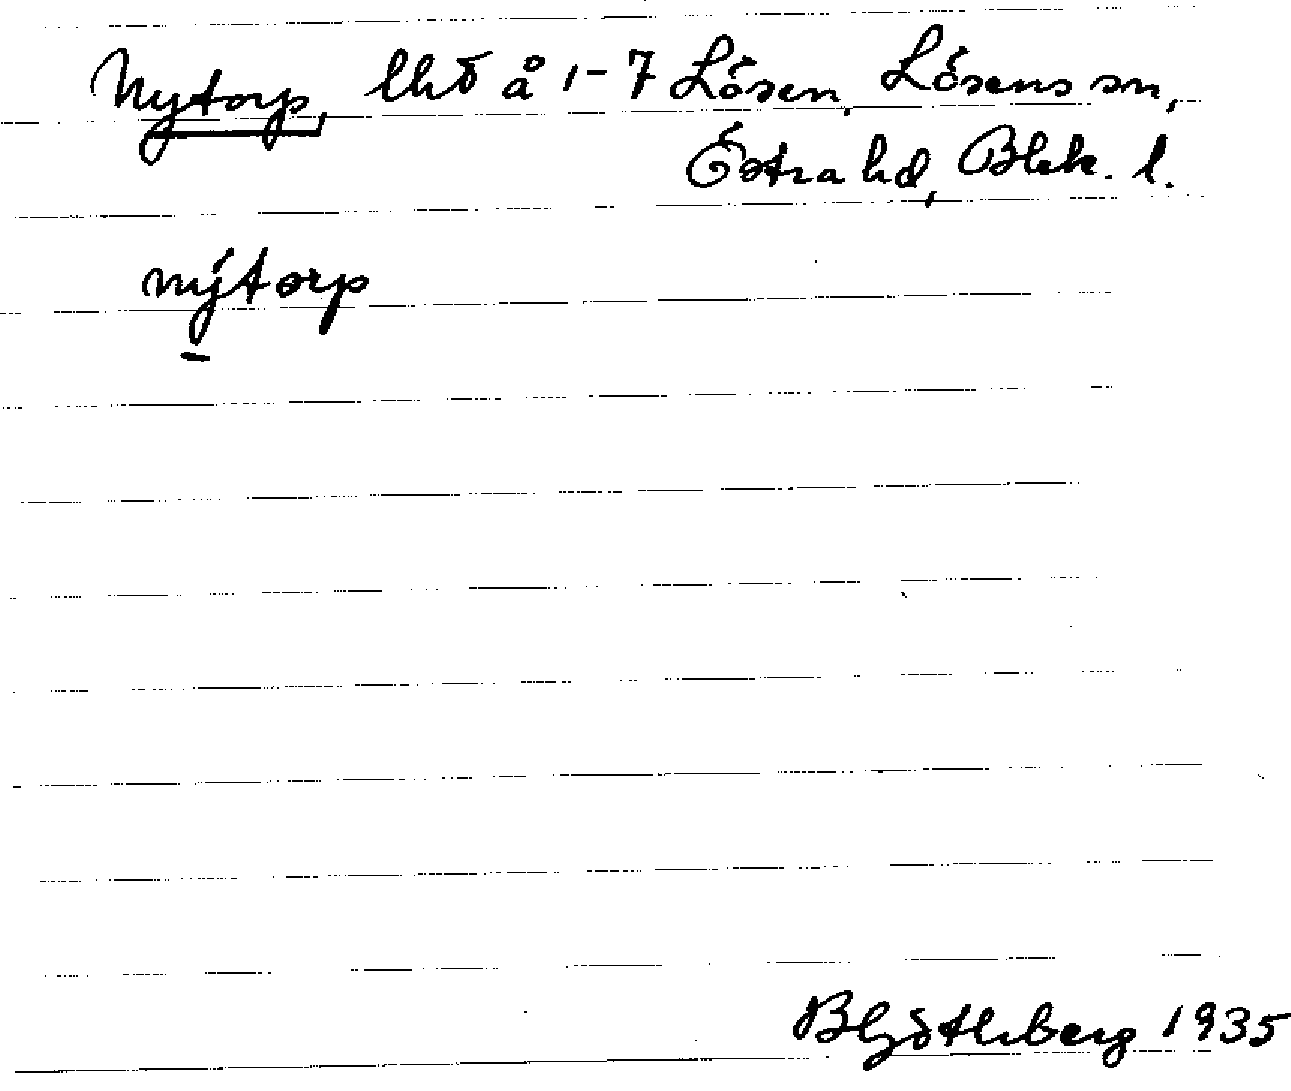 Nytorp, lhð å 1-7 Lösen, Lösens sn,
Östra hd, Blek. l.
nýtorp
1935